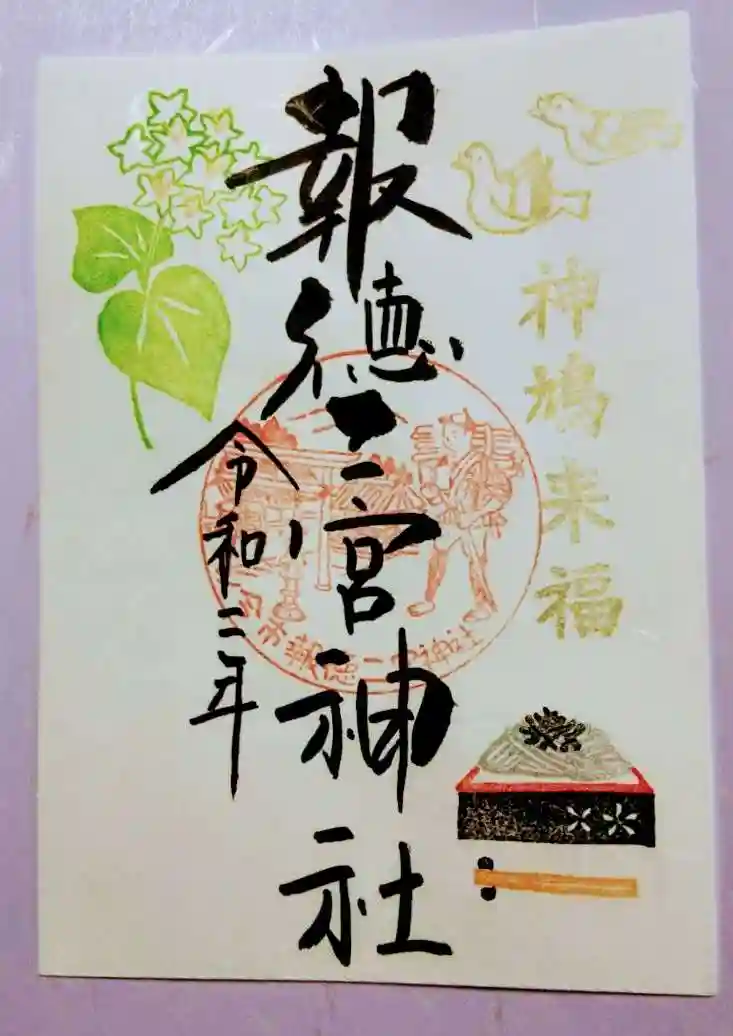 神鳩来福
報徳二宮神社
令和二年
市報徳二宮神社